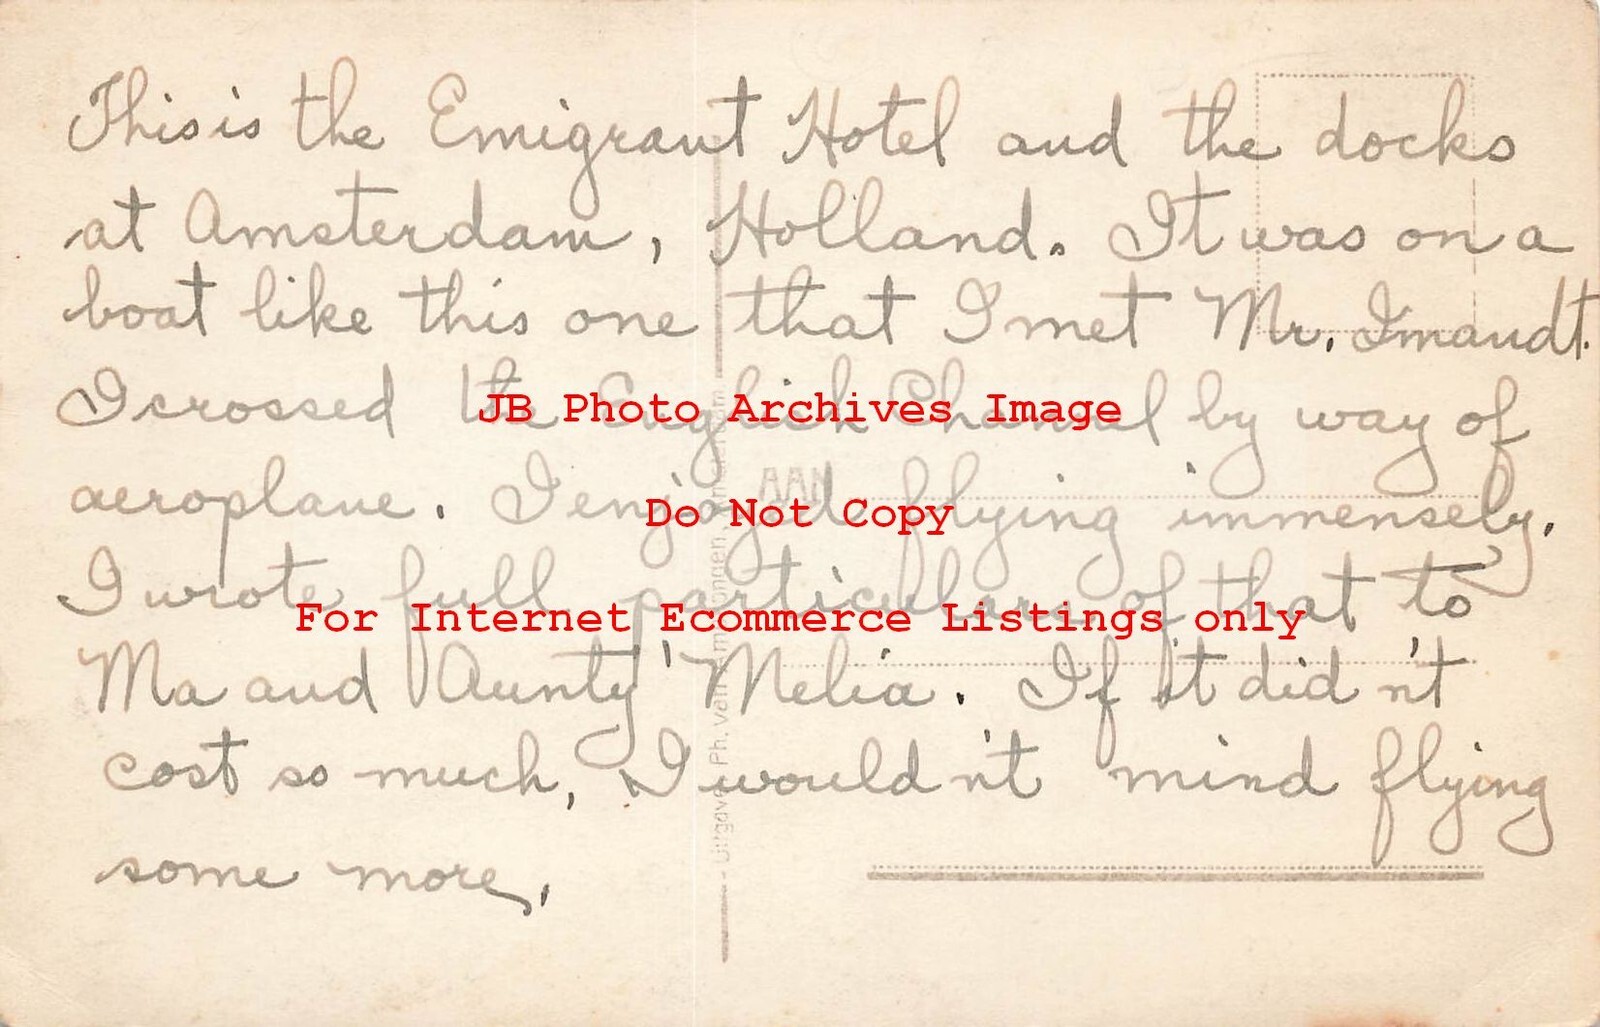 This is the Emigrant Hotel and the docks
at Amsterdam, Holland. It was on a
boat like this one that I met Mr. Imandt.
I crossed the English Channel by way of
aeroplane. I enjoyed flying immensely.
I wrote full particulars of that to
Ma and Aunty 'Melia. If it did n't
cost so much, I would n't mind flying
some more.
JB Photo Archives Image
Do Not Copy
For Internet Ecommerce Listings only
AAN